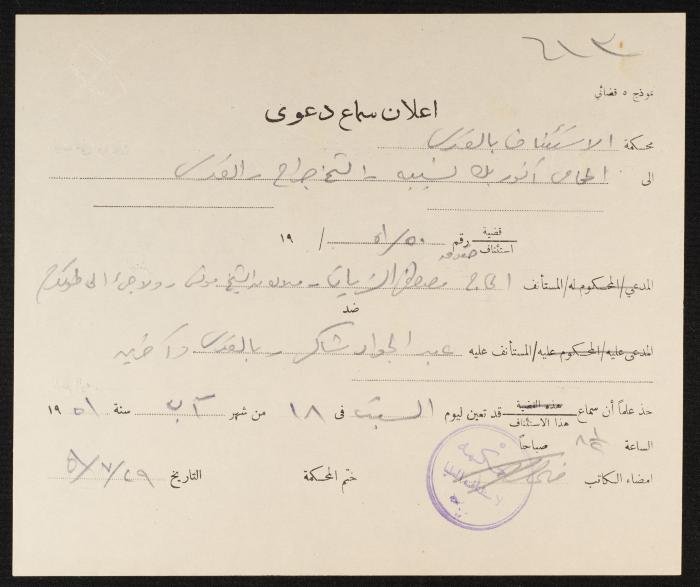 ٦١٣
نموذج ٥ قضائي
اعلان سماع دعوى
محكمة الاستئناف بالقدس
الى المحامي أنور بك نسيبه - الشيخ جراح - القدس
قضية
استئناف
رقم ٥١/٥٠ / ١٩
حقوقيه
المدعي/المحكوم له/المستأنف الحاج مصطفى الزيات - من الشيخ مونس - ولاجئ الى طولكرم
ضد
المدعى عليه/المحكوم عليه/المستأنف عليه عبد الجواد شاكر - بالقدس وآخرين
خذ علماً أن سماع هذه القضية
هذا الاستئناف
قد تعين ليوم السبت فى ١٨ من شهر آب سنة ١٩٥١
الساعة ٨½ صباحاً
امضاء الكاتب ختم المحكمة التاريخ ٥١/٧/٢٩
محكمة